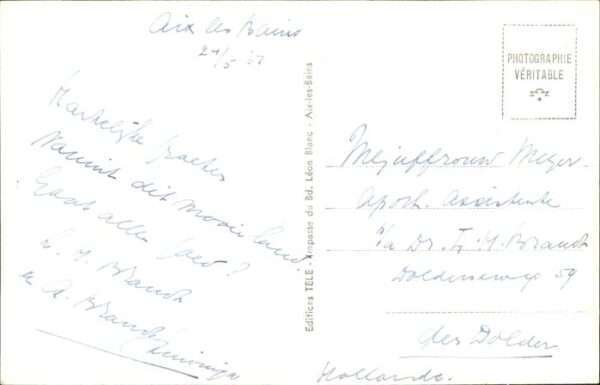 Aix les Bains
21/5
Hartelijke groeten
Vanuit dit mooie land
Gaat alles goed?
H. Brandt
en A. Brandt
Editions TELE - Impasse du Bd. Léon Blanc - Aix-les-Bains
PHOTOGRAPHIE
VÉRITABLE
Mejuffrouw Meyer
Apoth. Assistente
p/a Dr. H. Brandt
Dolderseweg 59
den Dolder
Hollande.